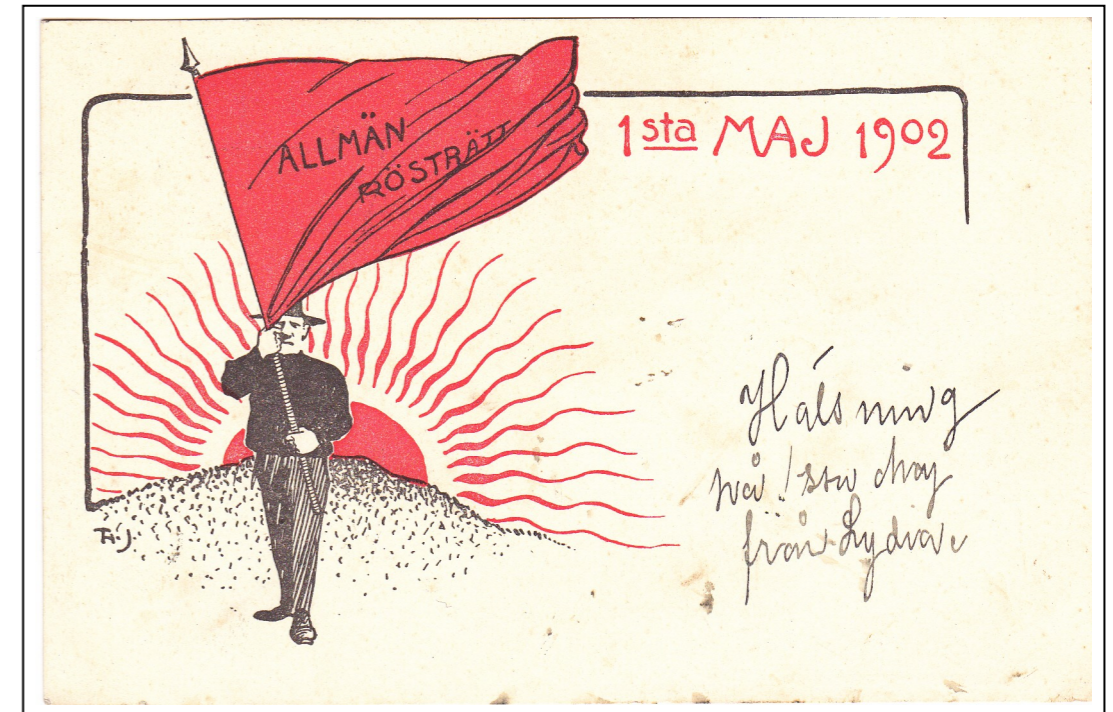 ALLMÄN
RÖSTRÄTT
1sta MAJ 1902
Hälsning
på 1sta Maj
från Lydia